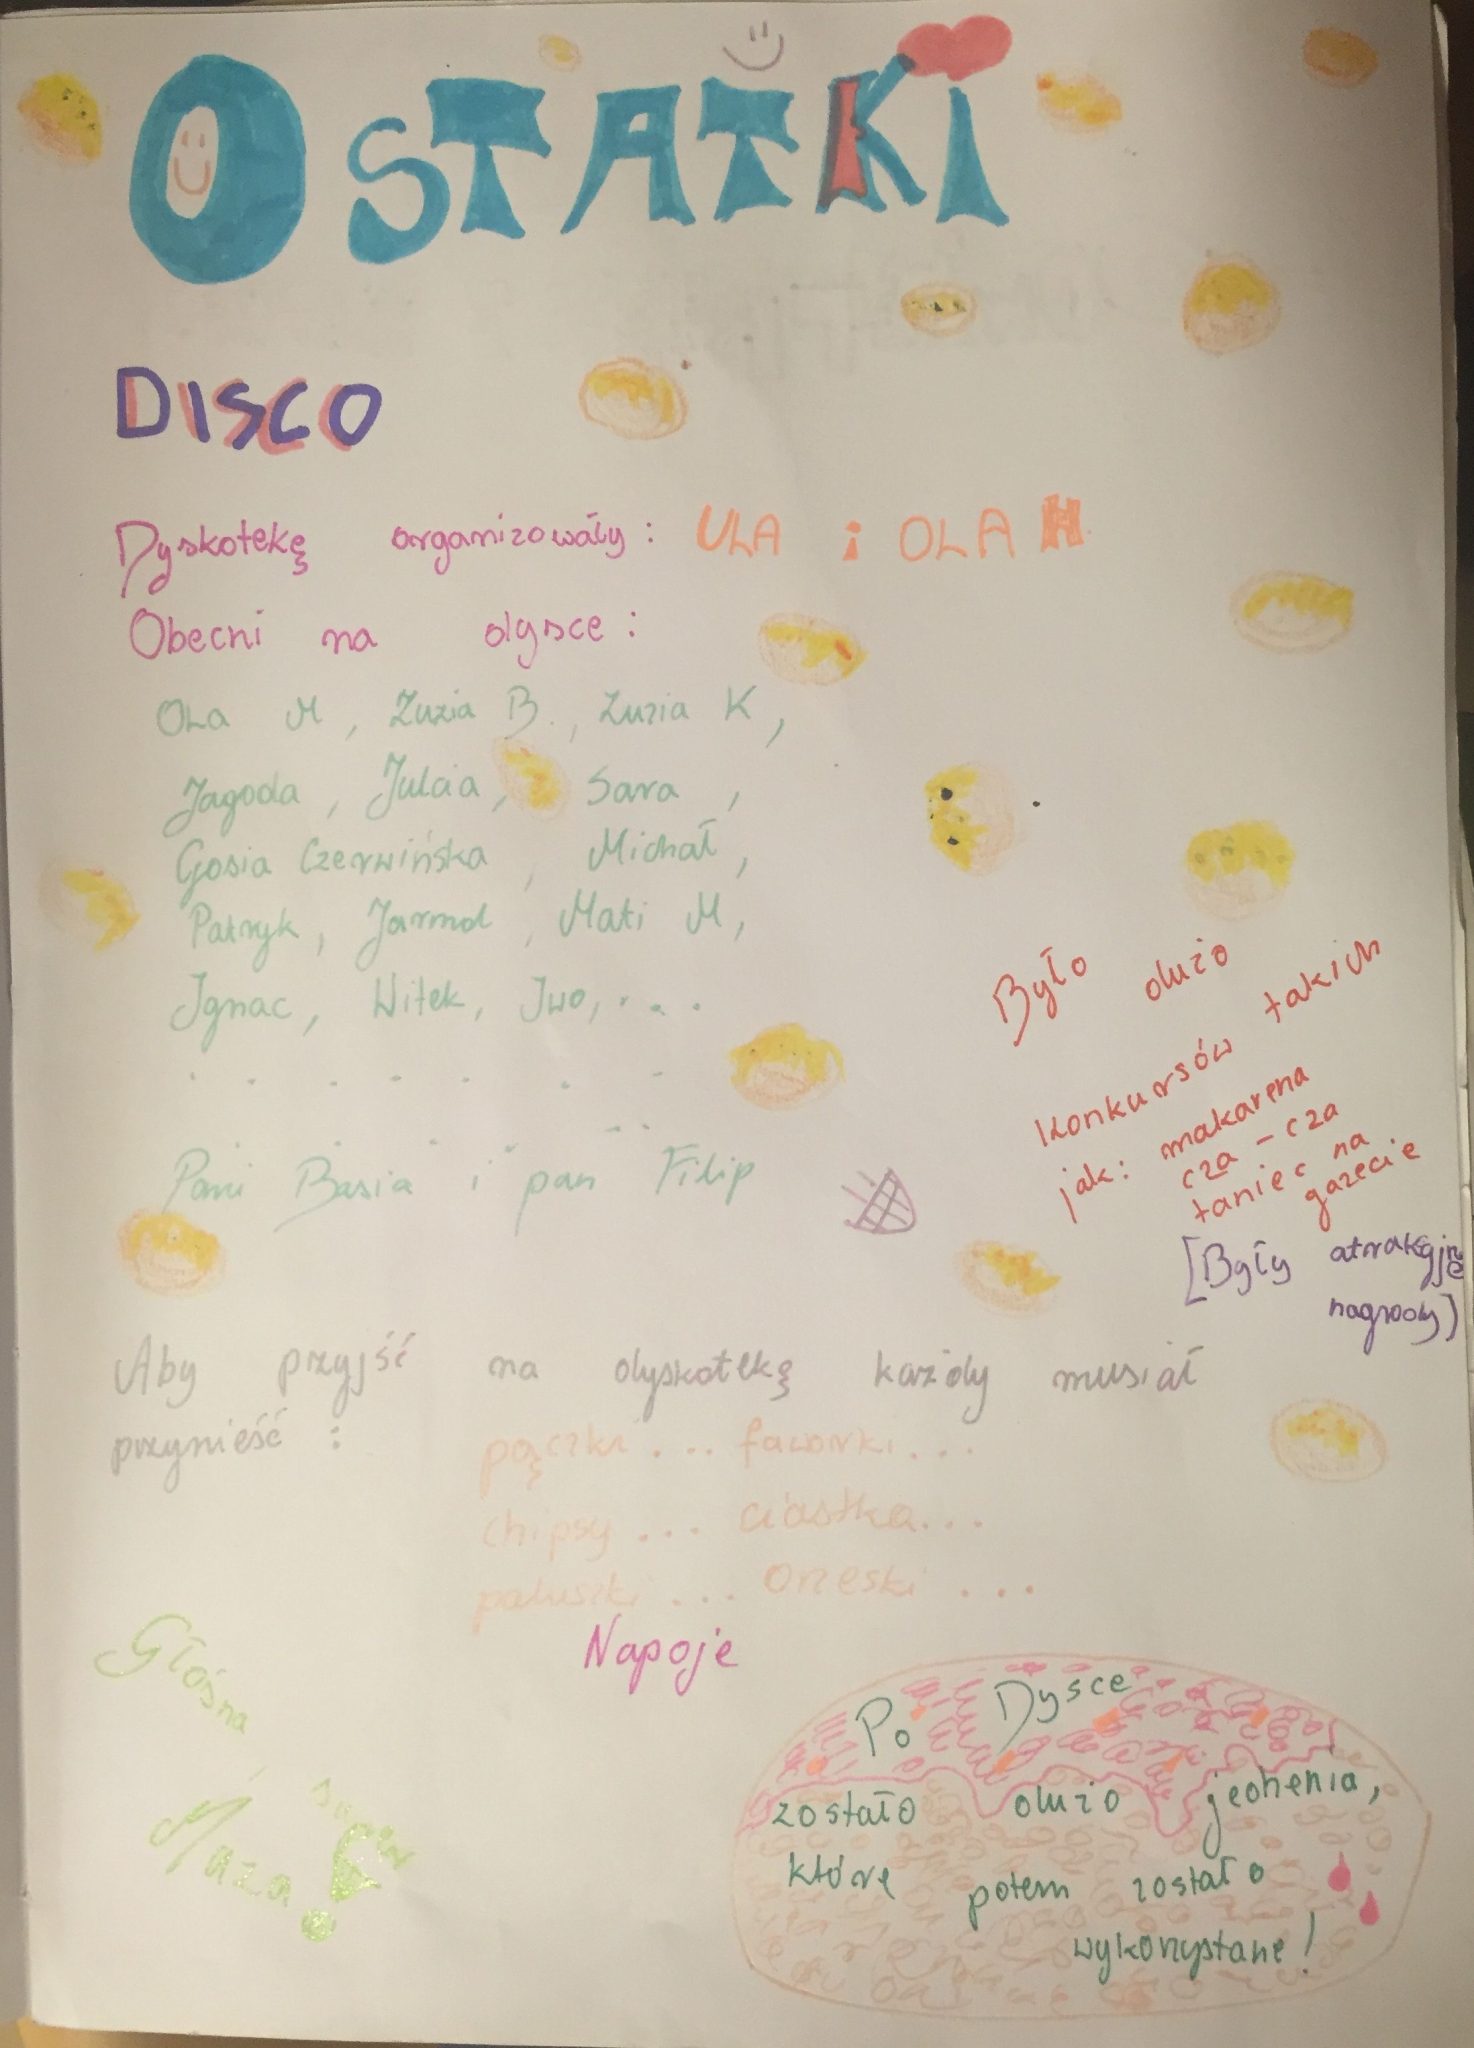 OSTATKI
DISCO
Dyskotekę organizowały: ULA i OLA H.
Obecni na dysce:
OLA M, Zuzia B., Zuzia K,
Jagoda, Julcia, Sara,
Gosia Czerwińska, Michał,
Patryk, Jarmol, Mati M,
Ignac, Witek, Iwo, ...
Pani Basia i pan Filip
Było dużo
konkursów takich
jak: makarena
cza-cza
taniec na
gazecie
[Były atrakcyjne
nagrody)
Aby przyjść na dyskotekę każdy musiał
przynieść: pączki... faworki...
chipsy... ciastka...
paluszki... orzeski...
Napoje
Głośna
Muza!
Po Dysce
zostało dużo jedzenia,
które potem zostało
wykorzystane!